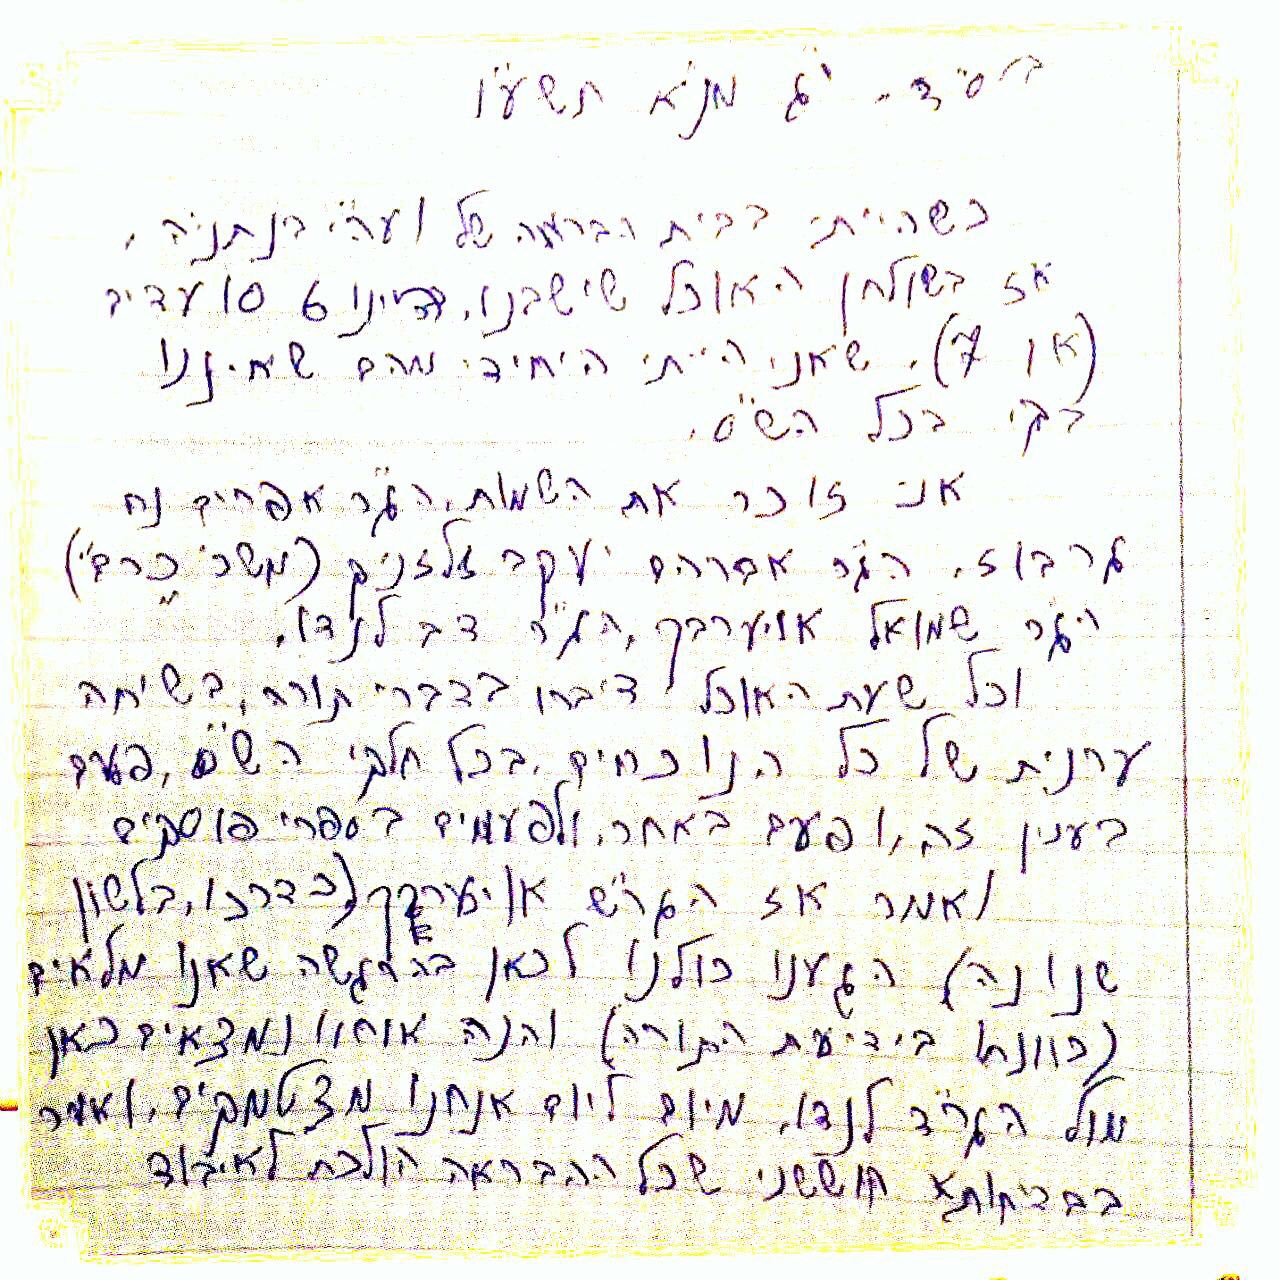 בס"ד - י"ג מנ"א תשע"ו
כשהייתי בבית הברא' של ועה"י בנתני',
אז בשולחן האוכל שישבנו, היינו 6 סועדים
(או 7), שאני הייתי היחידי מהם שאיננו
בקי בכל הש"ס.
אני זוכר את השמות, הג"ר אפרים נח
גרבוז, הג"ר אברהם יעקב זלזניק (משכ' כרם")
הג"ר שמואל אויערבך, הג"ר דב לנדו,
וכל שעת האוכל דיברו בדברי תורה, בשיחה
ערנית של כל הנוכחים, בכל חלקי הש"ס, פעם
בענין זה, ופעם באחר, ולפעמים בספרי פוסקים
ואמר אז הגר"ש אויערבך (כדרכו, בלשון
שנונה) הגענו כולנו לכאן בהרגשה שאנו מלאים
(כוונתו בידיעת התורה) והנה אנחנו נמצאים כאן
מול הגר"ד לנדו, מיום ליום אנחנו מצטמקים, ואמר
בבדיחותא חוששני שכל ההבראה הולכת לאיבוד